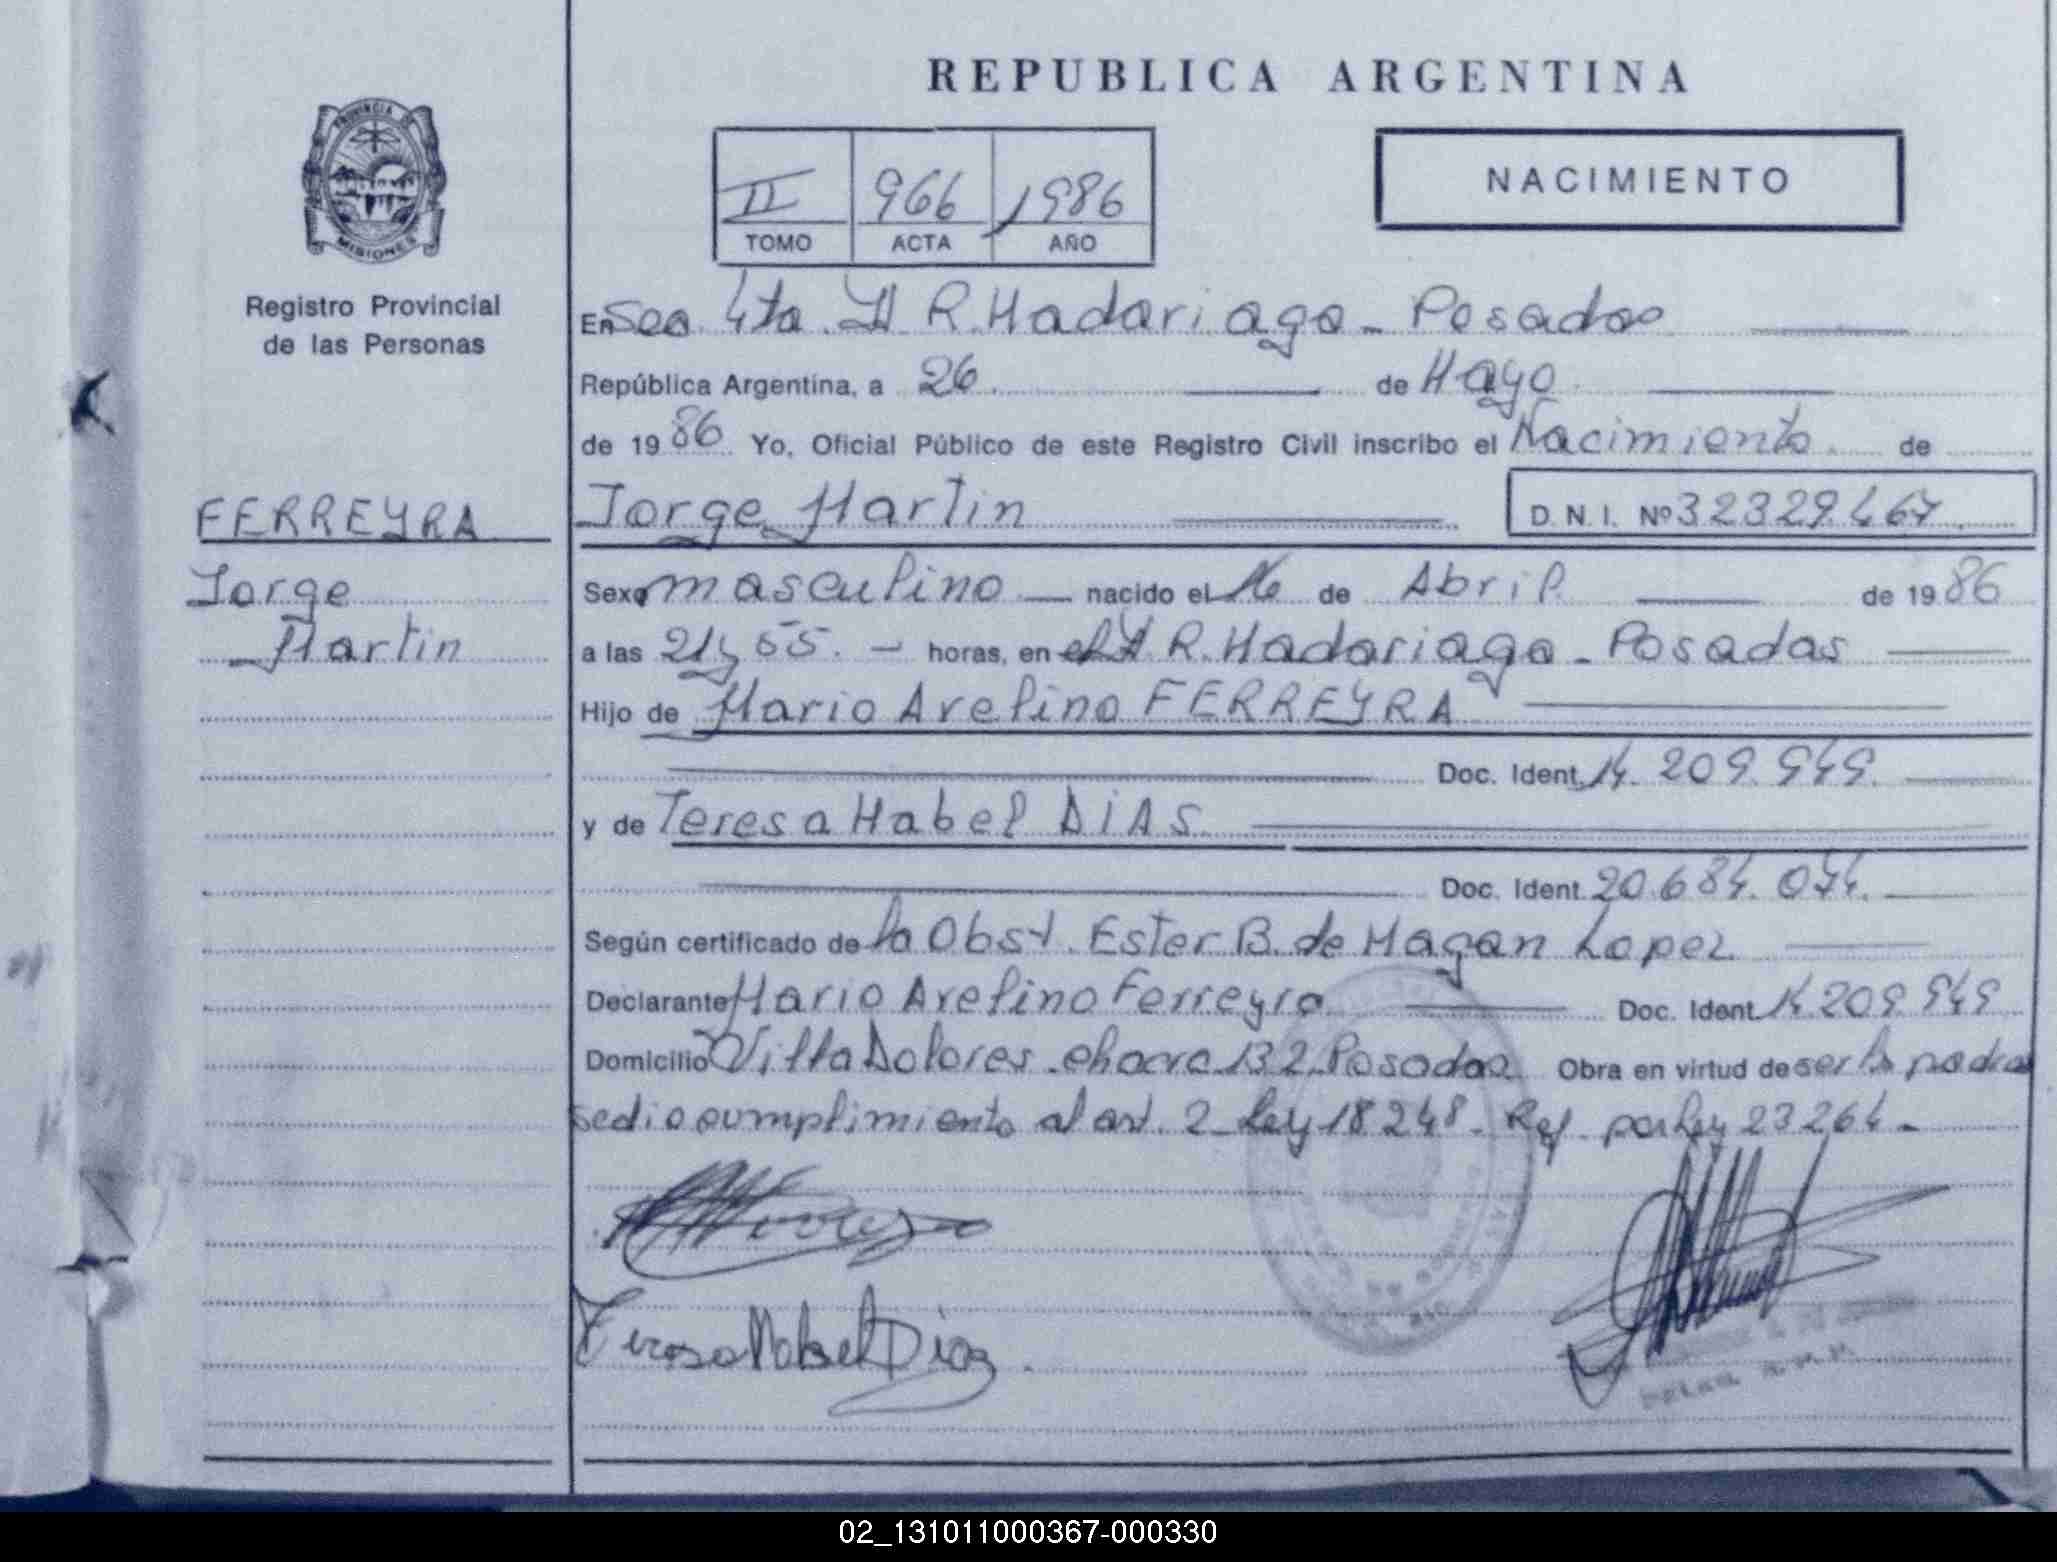 REPUBLICA ARGENTINA
PROVINCIA DE
MISIONES
Registro Provincial
de las Personas
II 966 1986
TOMO ACTA AÑO
NACIMIENTO
En Sec 4ta. H R. Madariaga - Posadas
República Argentina, a 26 de Mayo
de 1986 Yo, Oficial Público de este Registro Civil inscribo el Nacimiento de
FERREYRA
Jorge Martin D.N.I. Nº 32329.467
Jorge
Martin
Sexo masculino nacido el 16 de Abril de 1986
a las 21 y 55. - horas, en el H R. Madariaga - Posadas
Hijo de Mario Avelino FERREYRA
Doc. Ident. 14. 209. 949.
y de Teresa Mabel DiAS
Doc. Ident. 20.684. 074.
Según certificado de la Obst. Ester B. de Magan Lopez
Declarante Mario Avelino Ferreyra Doc. Ident. 14 209 949
Domicilio Villa Dolores - chacra 132 Posadas Obra en virtud de ser los padres
se dio cumplimiento al art. 2 - Ley 18 248 - Ref. por Ley 23 264 -
Teresa Mabel Diaz
02_131011000367-000330